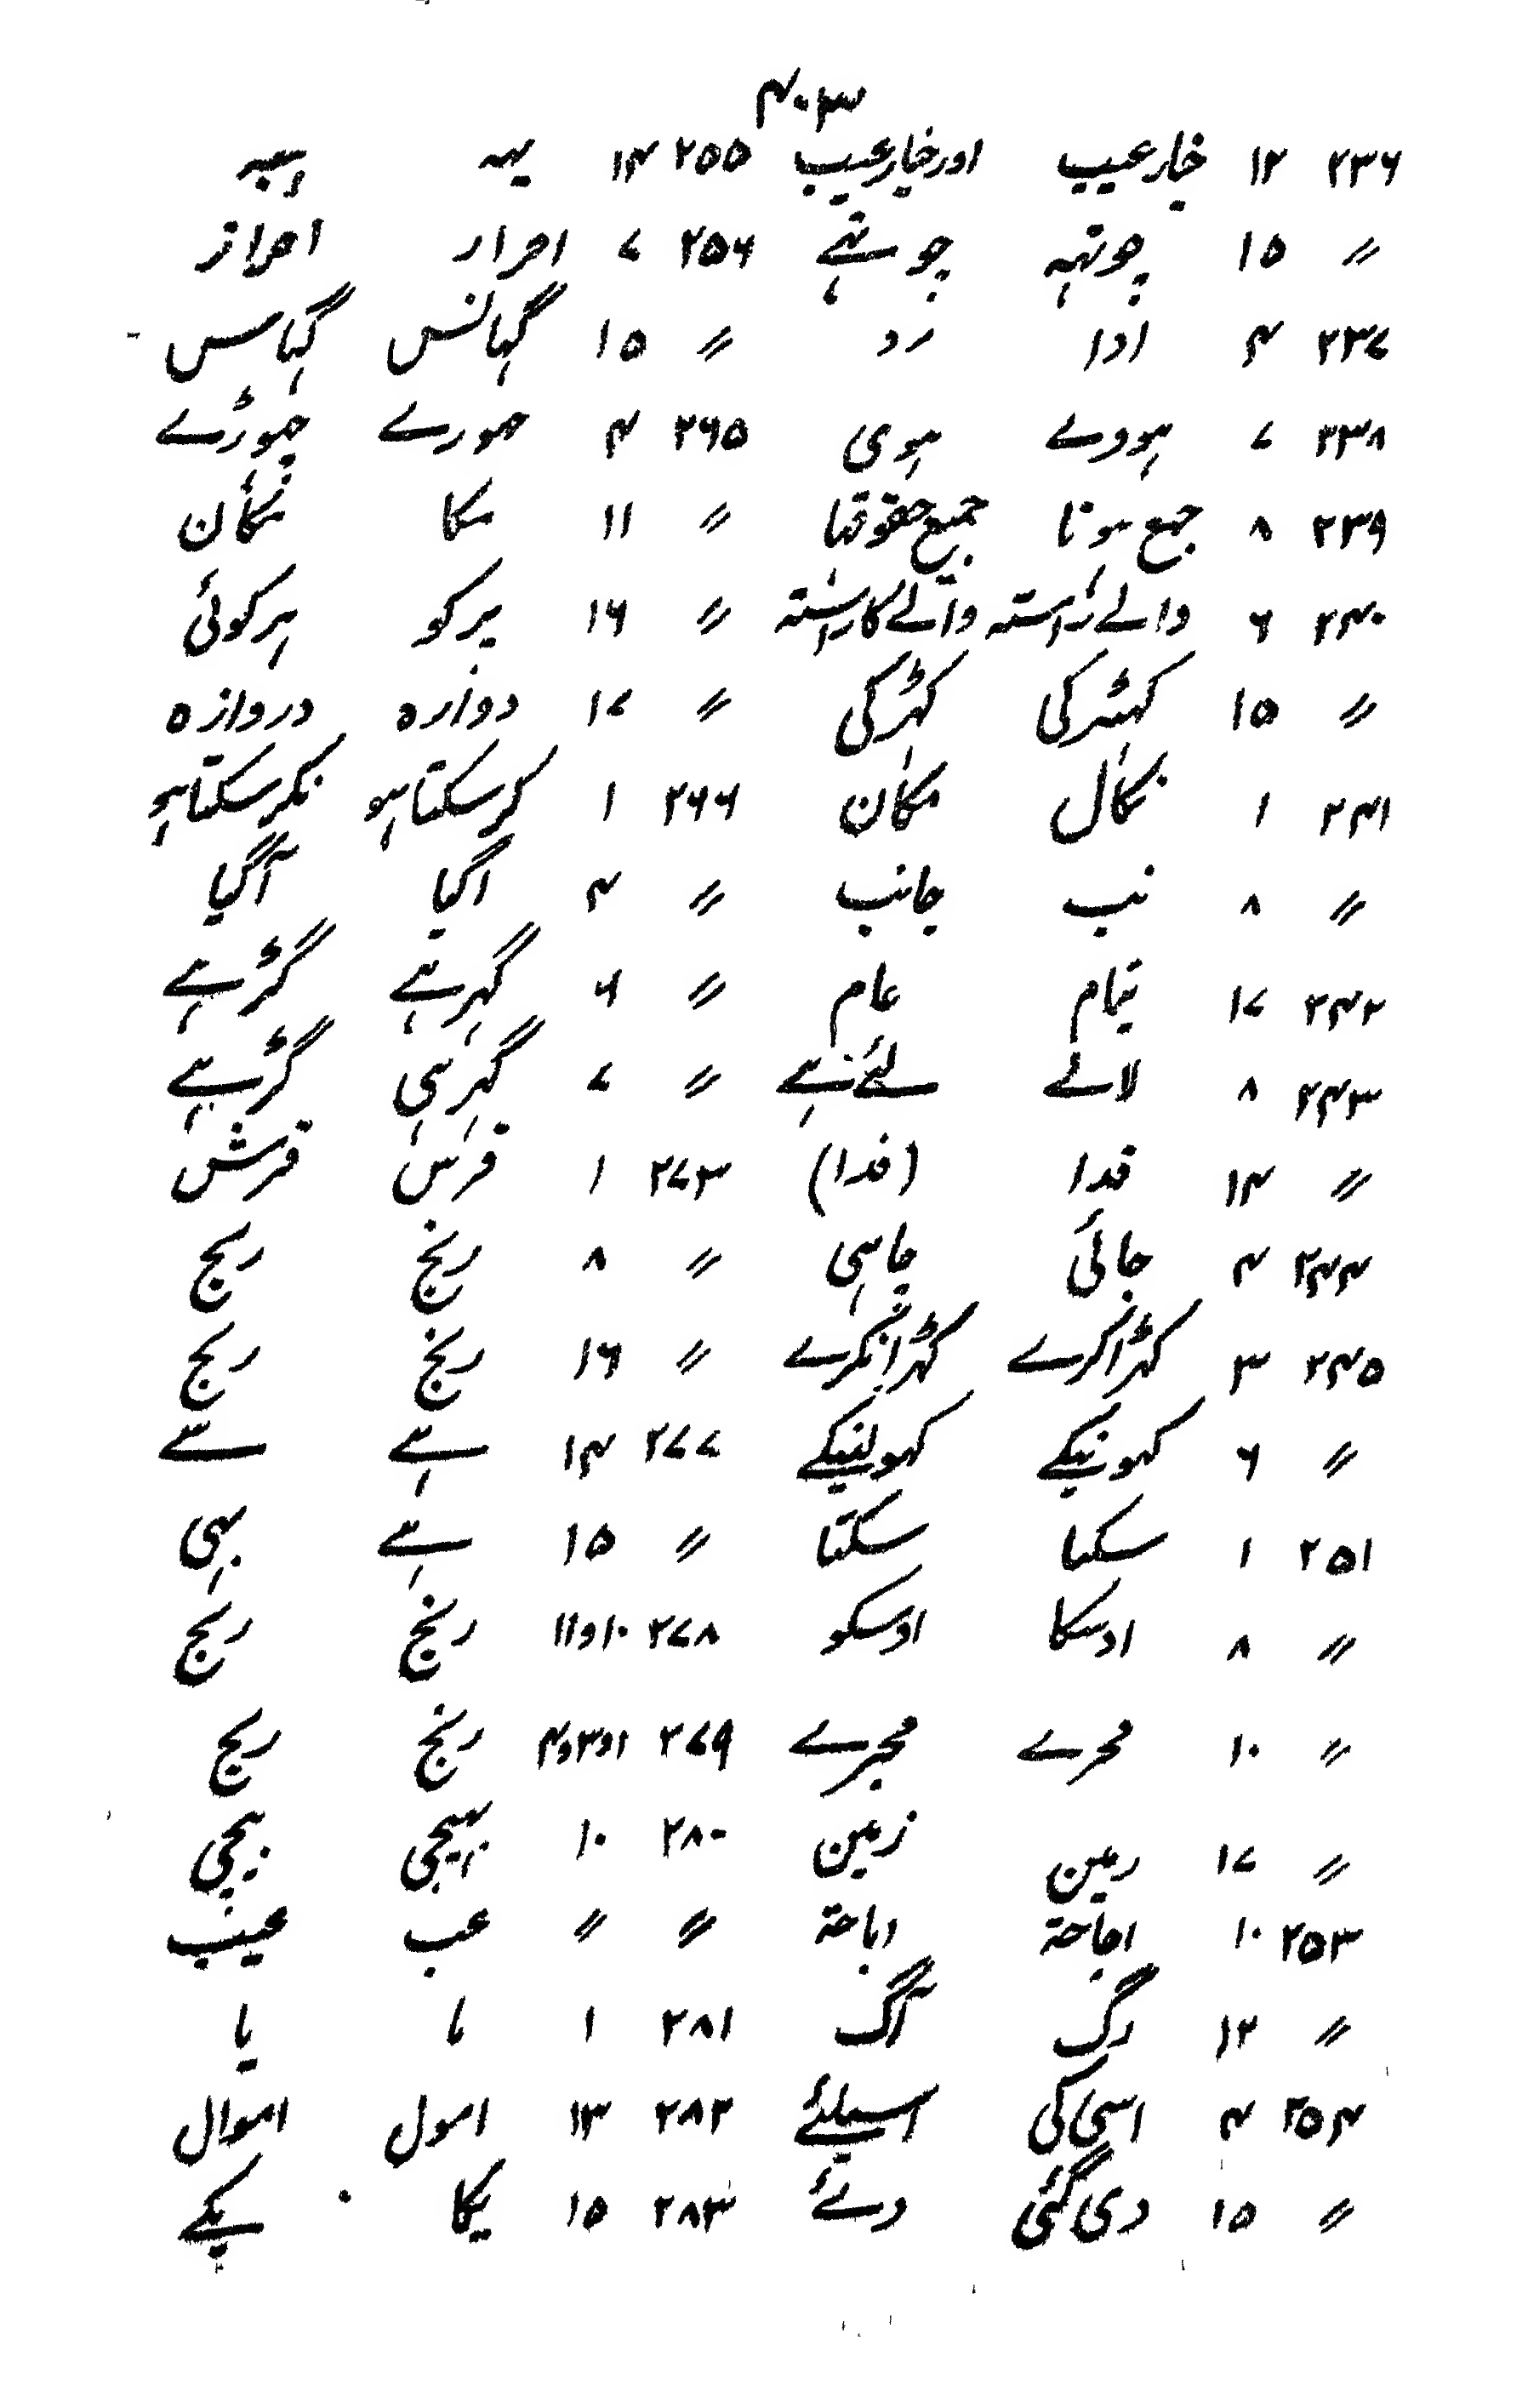 ۴۰۳
۲۳۶ ۱۲ خیار عیب اور خیار عیب ۲۵۵ ۱۴ یہہ
〃 ۱۵ چوتہہ چوتہے ۲۵۶ ۷ احرار احراز
۲۳۷ ۴ ادا رد 〃 ۱۵ گہانس گہاس
۲۳۸ ۷ ہووے ہوی ۲۶۵ ۴ چوڑے
۲۳۹ ۸ جمع ہونا جمیع حقوقہا 〃 ۱۱ مکا مکان
۲۴۰ ۶ والے راستہ والے کا راستہ 〃 ۱۶ ہرکو ہرکوئی
〃 ۱۵ کہٹرکی کہڑکی 〃 ۱۷ دوازہ دروازہ
۲۴۱ ۱ نکال مکان ۲۶۶ ۱ کرسکتا ہو نکرسکتا ہو
〃 ۸ نب جانب 〃 ۴ اگیا آگیا
۲۴۲ ۱۷ تمام عام 〃 ۶ گہرہے گڑہے
۲۴۳ ۸ لائے لئے ہے 〃 ۷ گہرہی گڑہے
〃 ۱۴ قدا (فدا) ۲۷۳ ۱ فرس فرش
۲۴۴ ۴ جائی چاہی 〃 ۸ ریخ ریح
۲۴۵ ۳ کہڑا کرے کہڑا نکرے 〃 ۱۶ ریخ ریح
〃 ۶ کہونیکے کہولنیکے ۲۷۷ ۱۴ ہے سے
۲۵۱ ۱ سکنا سکتا 〃 ۱۵ ہے بہی
〃 ۸ اوسکا اوسکو ۲۷۸ ۱۰و۱۱ ریخ ریح
〃 ۱۰ محرے مجرے ۲۷۹ ۱و۳و۴ ریخ ریح
〃 ۱۷ رمین زمین ۲۸۰ ۱۰ بہیجی بیچی
۲۵۳ ۱۰ اجاحۃ اباحۃ 〃 〃 عب عیب
〃 ۱۲ رگ آگ ۲۸۱ ۱ ما یا
۲۵۴ ۴ اسی کی اسیلئے ۲۸۲ ۱۳ امول اموال
〃 ۱۵ دی گئی دےٴ ۲۸۳ ۱۵ یکا یکے